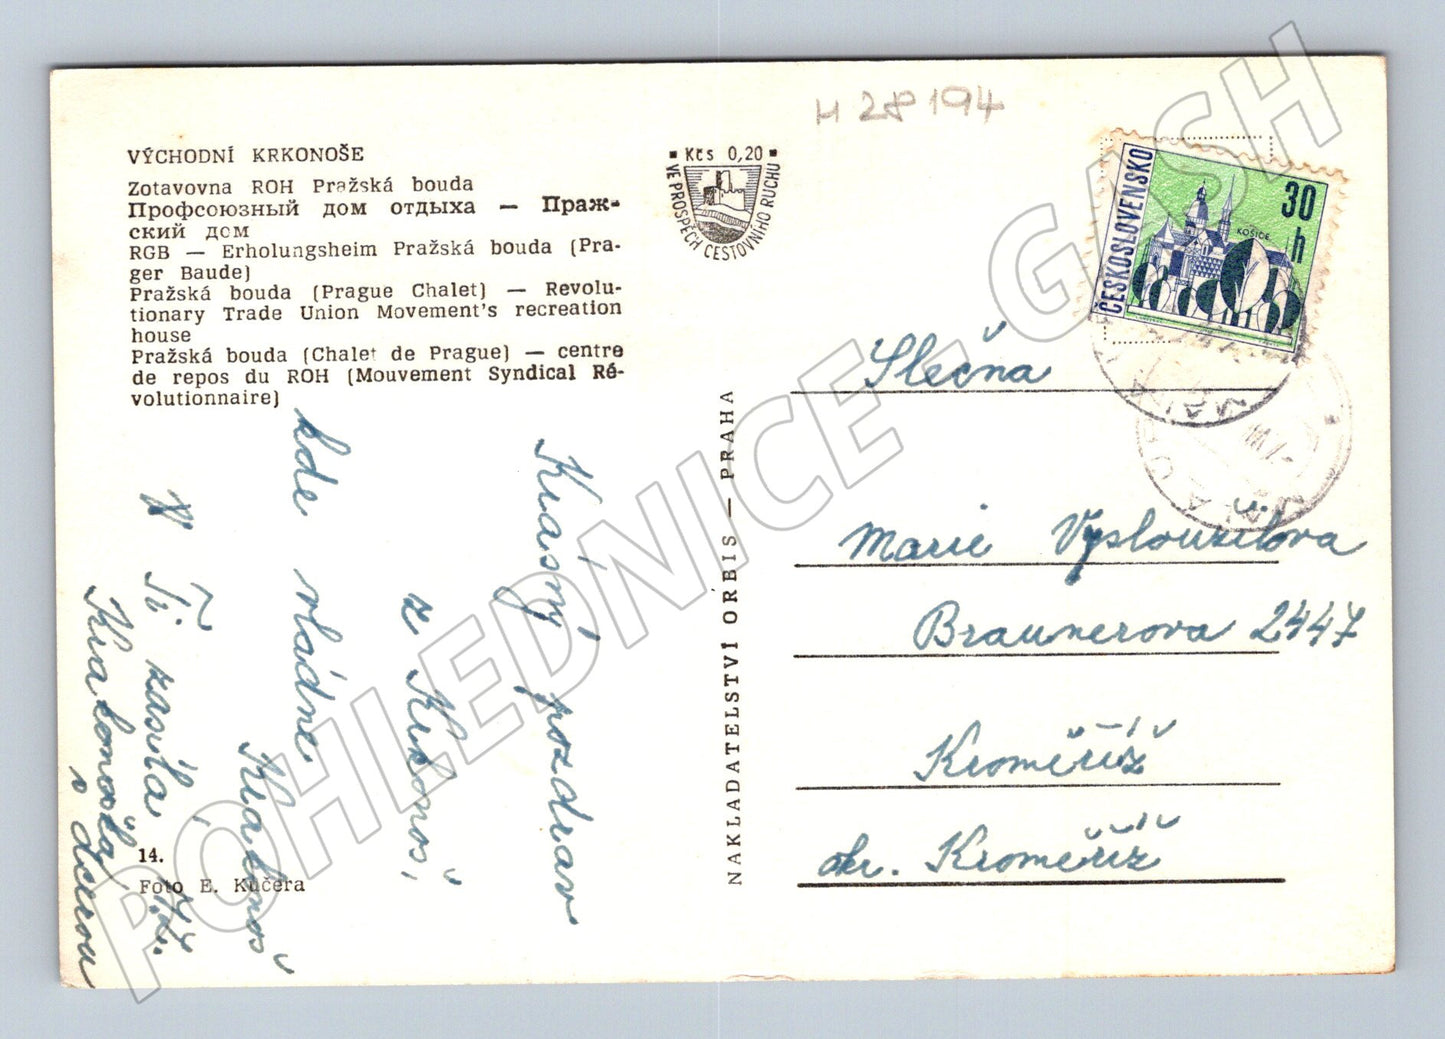 H 28194
VÝCHODNÍ KRKONOŠE
Zotavovna ROH Pražská bouda
Профсоюзный дом отдыха — Праж-
ский дом
RGB — Erholungsheim Pražská bouda (Pra-
ger Baude)
Pražská bouda (Prague Chalet) — Revolu-
tionary Trade Union Movement's recreation
house
Pražská bouda (Chalet de Prague) — centre
de repos du ROH (Mouvement Syndical Ré-
volutionnaire)
Kčs 0,20
VE PROSPĚCH CESTOVNÍHO RUCHU
ČESKOSLOVENSKO
30 h
KOŠICE
Krásný pozdrav
z Krkonoš,
kde vládne
Krakonoš
Ti zasílá
Krakonoška
s dcerou
14.
Foto E. Kučera
NAKLADATELSTVÍ ORBIS — PRAHA
Slečna
Marie Vyslouzilova
Braunerova 2447
Kroměříž
okr. Kroměříž
POHLEDNICE - GASH